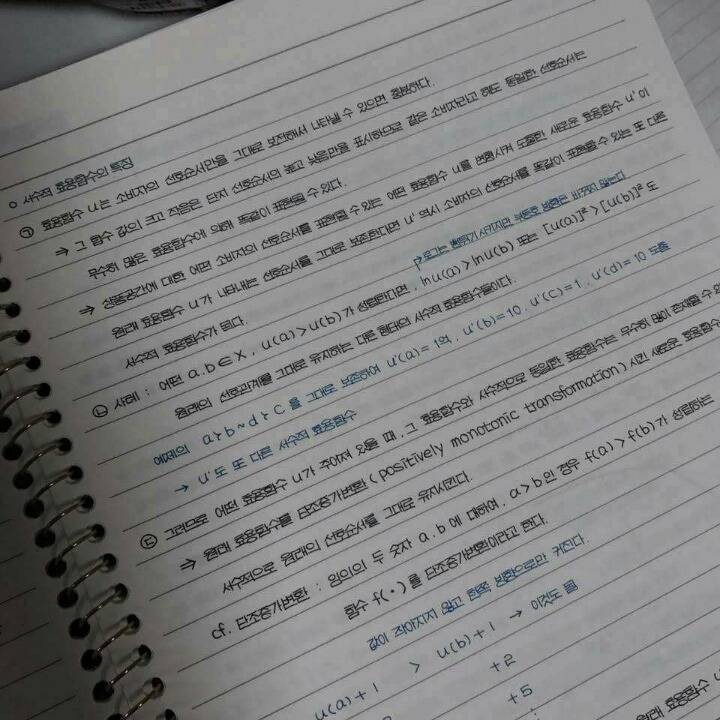 ○ 서수적 효용함수의 특징
㉠ 효용함수 u는 소비자의 선호순서만을 그대로 보전해서 나타낼 수 있으면 충분하다.
⇒ 그 함수 값의 크고 작음은 단지 선호순서의 높고 낮음만을 표시하므로 같은 소비자라고 해도 동일한 선호순서는
무수히 많은 효용함수에 의해 똑같이 표현될 수 있다.
⇒ 상품공간에 대한 어떤 소비자의 선호순서를 표현할 수 있는 어떤 효용함수 u를 변형시켜 도출한 새로운 효용함수 u'이
원래 효용함수 u가 나타내는 선호순서를 그대로 보존한다면 u' 역시 소비자의 선호순서를 똑같이 표현할 수 있는 또 다른
서수적 효용함수가 된다.
로그는 변형하기 시키지만 부등호 방향은 바꾸지 않는다
㉡ 사례 : 어떤 a.b∈X, u(a)>u(b)가 성립한다면, lnu(a)>lnu(b) 또는 [u(a)]²>[u(b)]²도
원래의 선호관계를 그대로 유지하는 다른 형태의 서수적 효용함수들이다.
예제의 a≻b~d≻c 를 그대로 보존하여 u'(a)=19, u'(b)=10, u'(c)=1, u'(d)=10 도출
→ u'도 또 다른 서수적 효용함수
㉢ 그러므로 어떤 효용함수 u가 주어져 있을 때, 그 효용함수와 서수적으로 동일한 효용함수는 무수히 많이 존재할 수
⇒ 원래 효용함수를 단조증가변환(positively monotonic transformation)시킨 새로운 효용함수
서수적으로 원래의 선호순서를 그대로 유지시킨다.
cf. 단조증가변환 : 임의의 두 숫자 a.b에 대하여, a>b인 경우 f(a)>f(b)가 성립하는
함수 f(·)를 단조증가변환이라고 한다.
값이 작아지지 않고 한쪽 방향으로만 커진다.
u(a)+1 > u(b)+1 → 이것도 됨
+2
+5
원래 효용함수 u